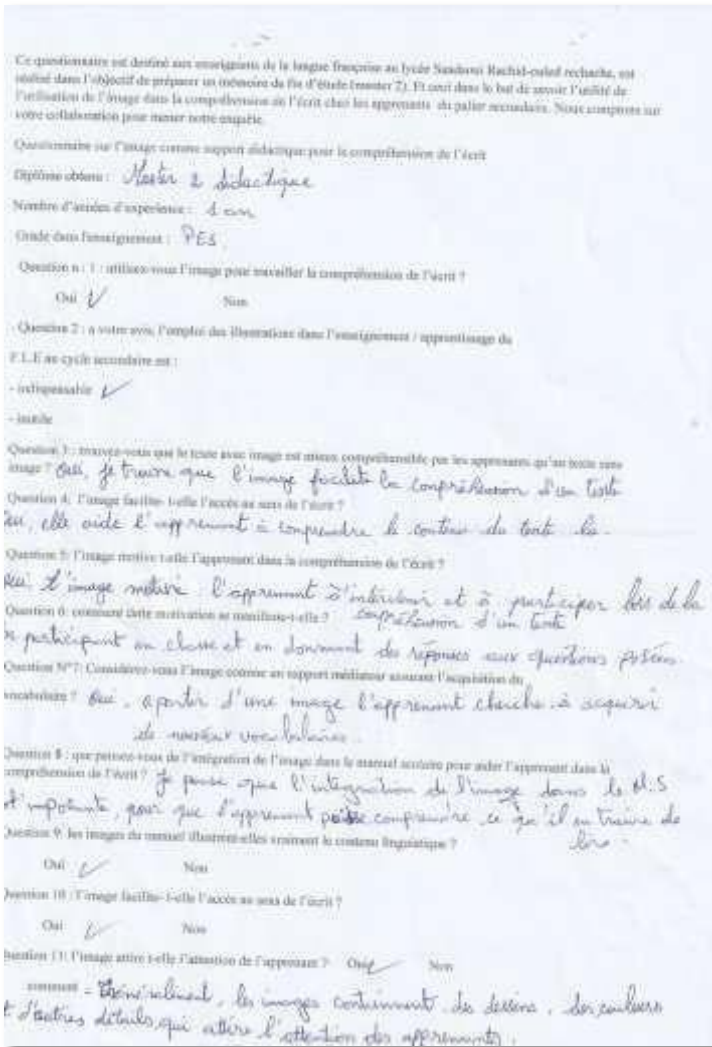 Ce questionnaire est destiné aux enseignants de la langue française au lycée Saadaoui Rachid-ouled rechache, est
réalisé dans l'objectif de préparer un mémoire de fin d'étude (master 2). Et ceci dans le but de savoir l'utilité de
l'utilisation de l'image dans la compréhension de l'écrit chez les apprenants du palier secondaire. Nous comptons sur
votre collaboration pour mener notre enquête.
Questionnaire sur l'image comme support didactique pour la compréhension de l'écrit
Diplôme obtenu : Master 2 didactique
Nombre d'années d'expérience : 1 an
Grade dans l'enseignement : PES.
Question n : 1 : utilisez-vous l'image pour travailler la compréhension de l'écrit ?
Oui ✓ Non
- Question 2 : a votre avis, l'emploi des illustrations dans l'enseignement / apprentissage du
F.L.E au cycle secondaire est :
- indispensable ✓
- inutile
Question 3 : trouvez-vous que le texte avec image est mieux compréhensible par les apprenants qu'un texte sans
image ? Oui, je trouve que l'image facilite la compréhension d'un texte
Question 4: l'image facilite- t-elle l'accès au sens de l'écrit ?
Oui, elle aide l'apprenant à comprendre le contenu du texte
Question 5: l'image motive t-elle l'apprenant dans la compréhension de l'écrit ?
Oui l'image motive l'apprenant à intervenir et à participer lors de la
compréhension d'un texte
Question 6: comment cette motivation se manifeste-t-elle ?
participant en classe et en donnant des réponses aux questions posées.
Question N°7: Considérez-vous l'image comme un support médiateur assurant l'acquisition du
vocabulaire ? Oui, apartir d'une image l'apprenant cherche à acquérir
de nouveau vocabulaires.
Question 8 : que pensez-vous de l'intégration de l'image dans le manuel scolaire pour aider l'apprenant dans la
compréhension de l'écrit ? Je pense que l'intégration de l'image dans le M.S
impotante, pour que l'apprenant puisse comprendre ce qu'il en traine de
lire.
Question 9: les images du manuel illustrent-elles vraiment le contenu linguistique ?
Oui ✓ Non
Question 10 : l'image facilite- t-elle l'accès au sens de l'écrit ?
Oui ✓ Non
Question 11: l'image attire t-elle l'attention de l'apprenant ? Oui ✓ Non
comment - Généralement, les images contiennent des dessins, des couleurs
d'autres détails qui attire l'attention des apprenants.